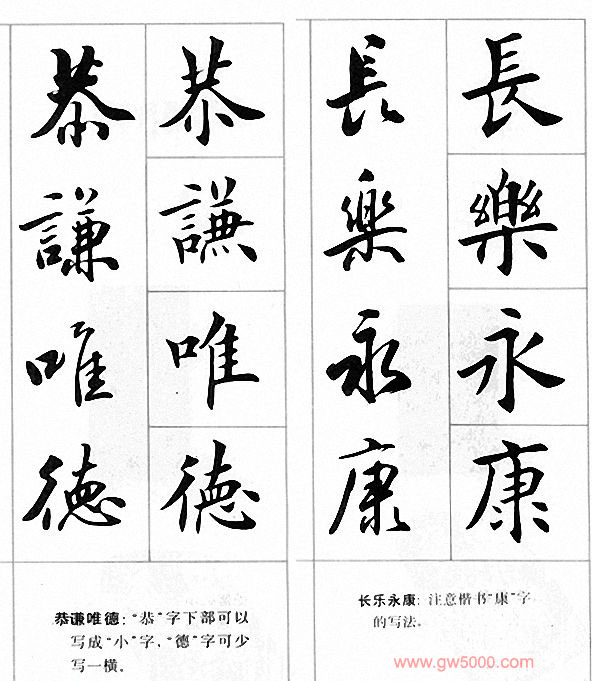 長樂永康
長楽永康
恭謙唯德
恭謙唯徳
恭谦唯德：“恭”字下部可以
写成“小”字，“德”字可少
写一横。
长乐永康：注意楷书“康”字
的写法。
www.gw5000.com